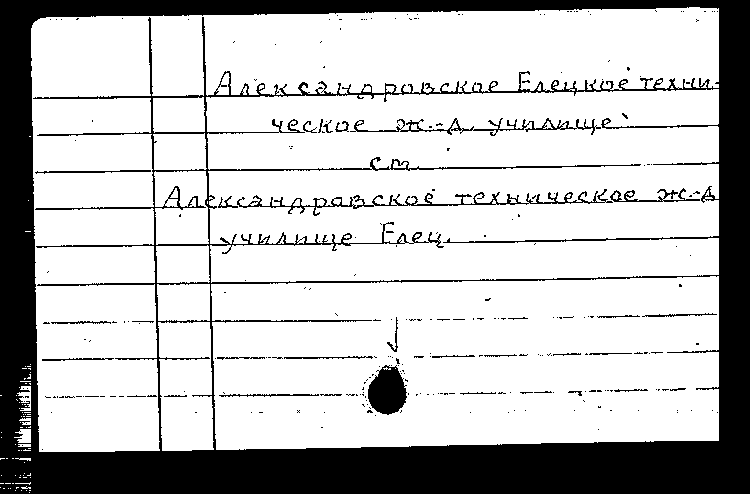 Александровское Елецкое техни-
ческое ж.-д. училище
см.
Александровское техническое ж.-д
училище Елец.